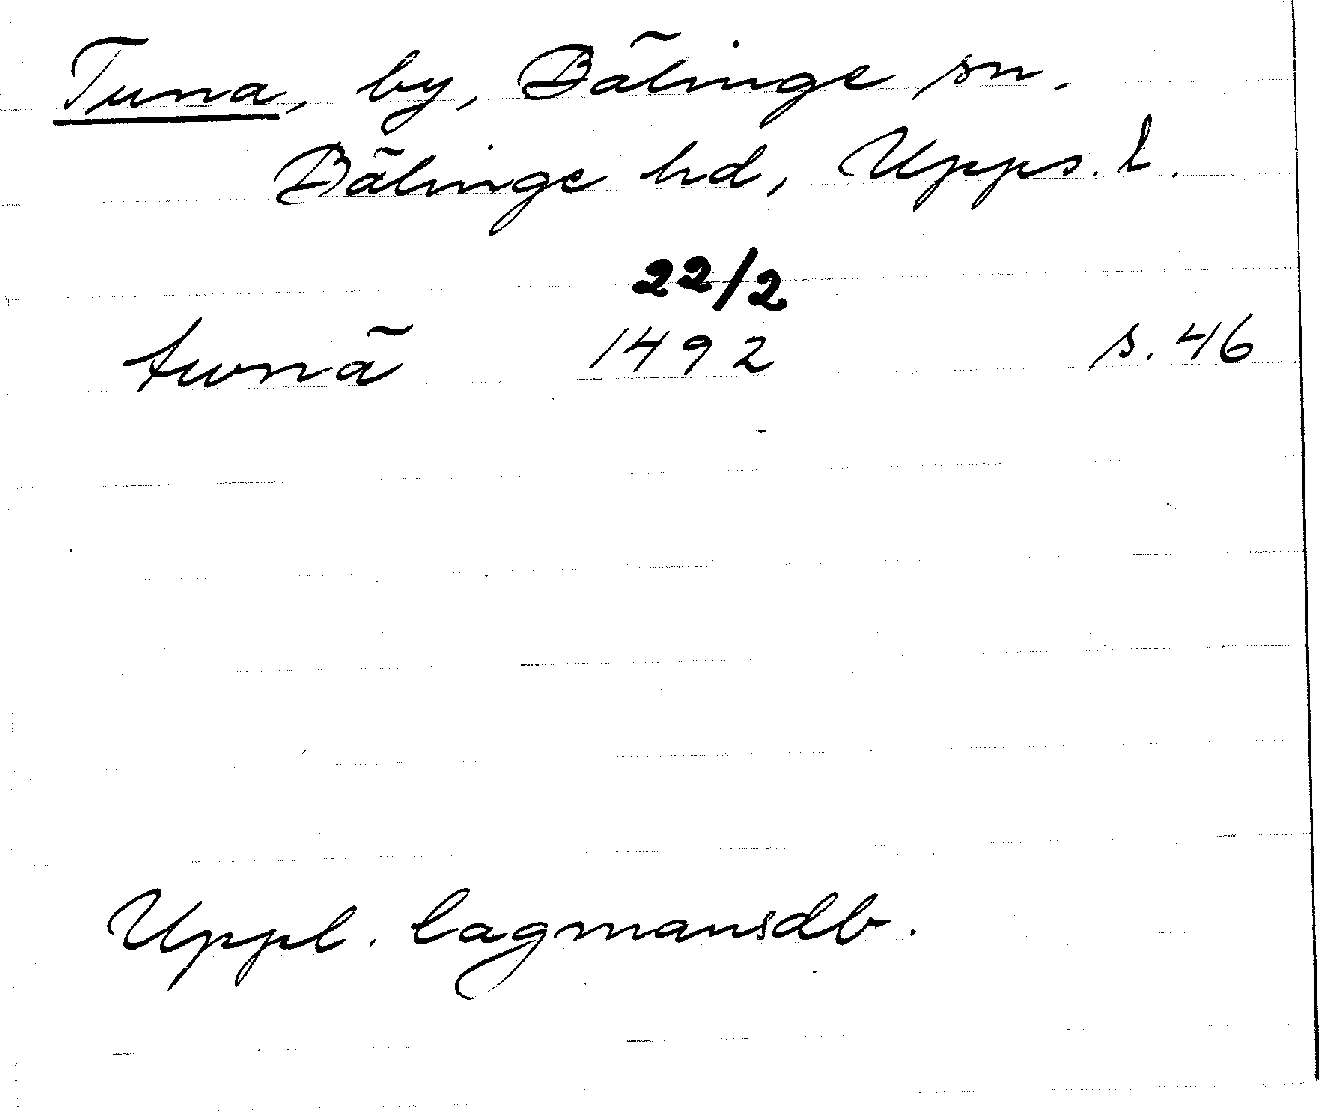 Tuna, by, Bälinge sn.
Bälinge hd, Upps. l.
22/2
twnä 1492 s. 46
Uppl. lagmansdb.